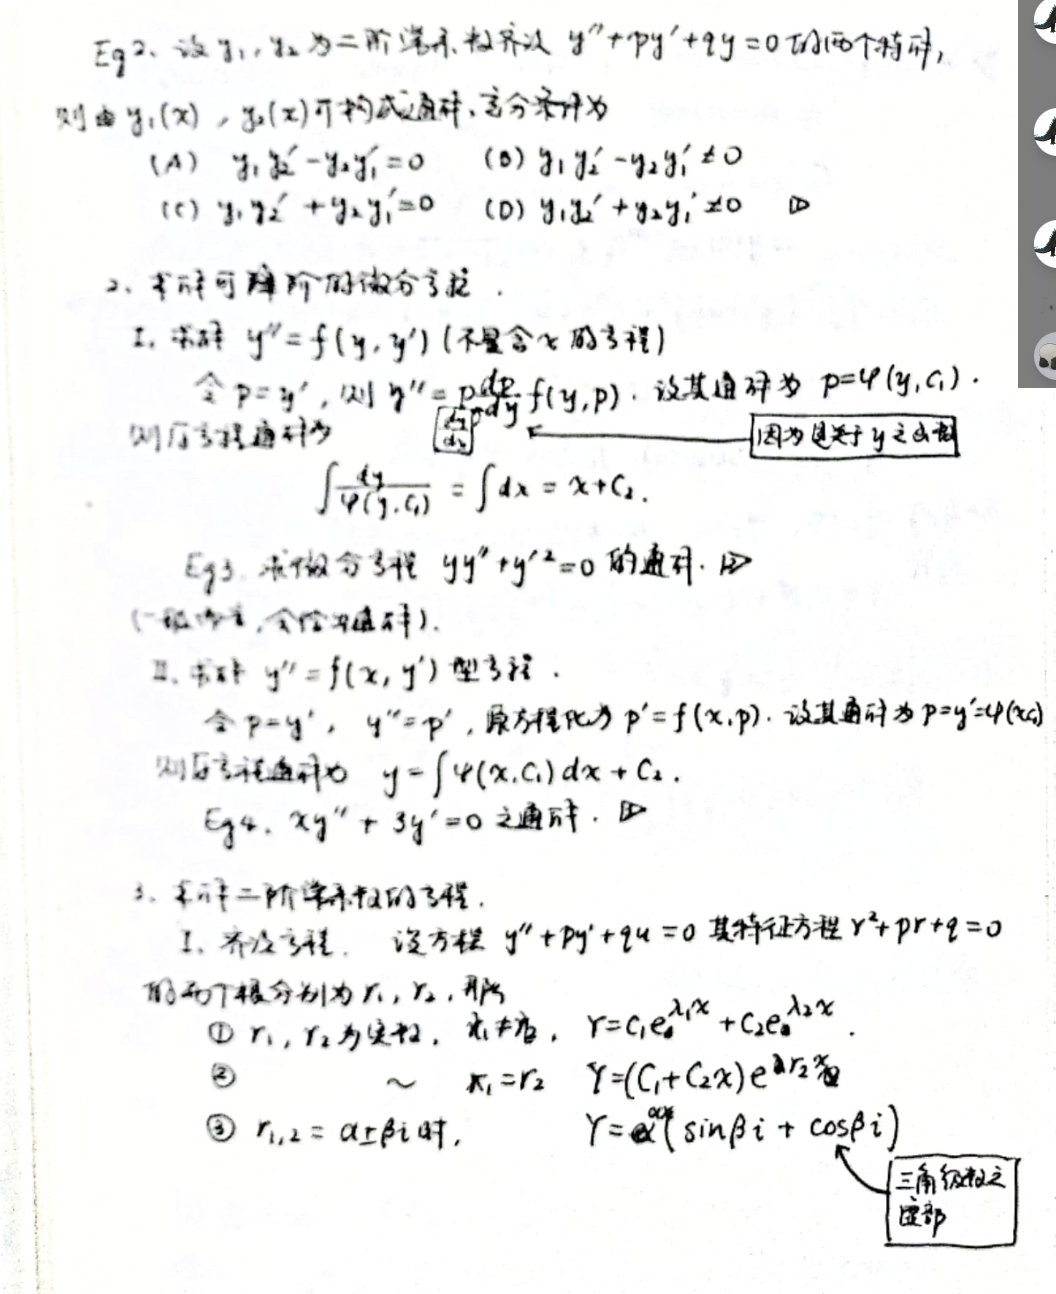 Eg2. 设 y₁, y₂ 为二阶常系数齐次 y''+py'+qy=0 的两个特解,
则由 y₁(x), y₂(x) 可构成通解、充分条件为
(A) y₁y₂'-y₂y₁'=0 (B) y₁y₂'-y₂y₁'≠0
(C) y₁y₂'+y₂y₁'=0 (D) y₁y₂'+y₂y₁'≠0 ▷
2、求解可降阶的微分方程.
I. 求解 y''=f(y,y') (不显含x的方程)
令 p=y', 则 y''=p dp/dy f(y,p). 设其通解为 p=φ(y,c₁).
则原方程通解为
因为是关于y之函数
∫dy/φ(y,c₁) = ∫dx = x+C₂.
Eg3. 求微分方程 yy''+y'²=0 的通解. ▷
II. 求解 y''=f(x,y') 型方程.
令 p=y', y''=p', 原方程化为 p'=f(x,p). 设其通解为 p=y'=φ(x,c₁)
则原方程通解为 y=∫φ(x,C₁)dx+C₂.
Eg4. xy''+3y'=0 之通解. ▷
3、求解二阶常系数的方程.
I. 齐次方程. 设方程 y''+py'+qu=0 其特征方程 r²+pr+q=0
的两个根分别为 r₁, r₂,
① r₁, r₂ 为实数, Y=C₁e^λ₁x+C₂e^λ₂x.
② ~ r₁=r₂ Y=(C₁+C₂x)e^r₂x
③ r₁,₂=α±βi时, Y=e^αx(sinβi+cosβi)
三角级数之
虚部